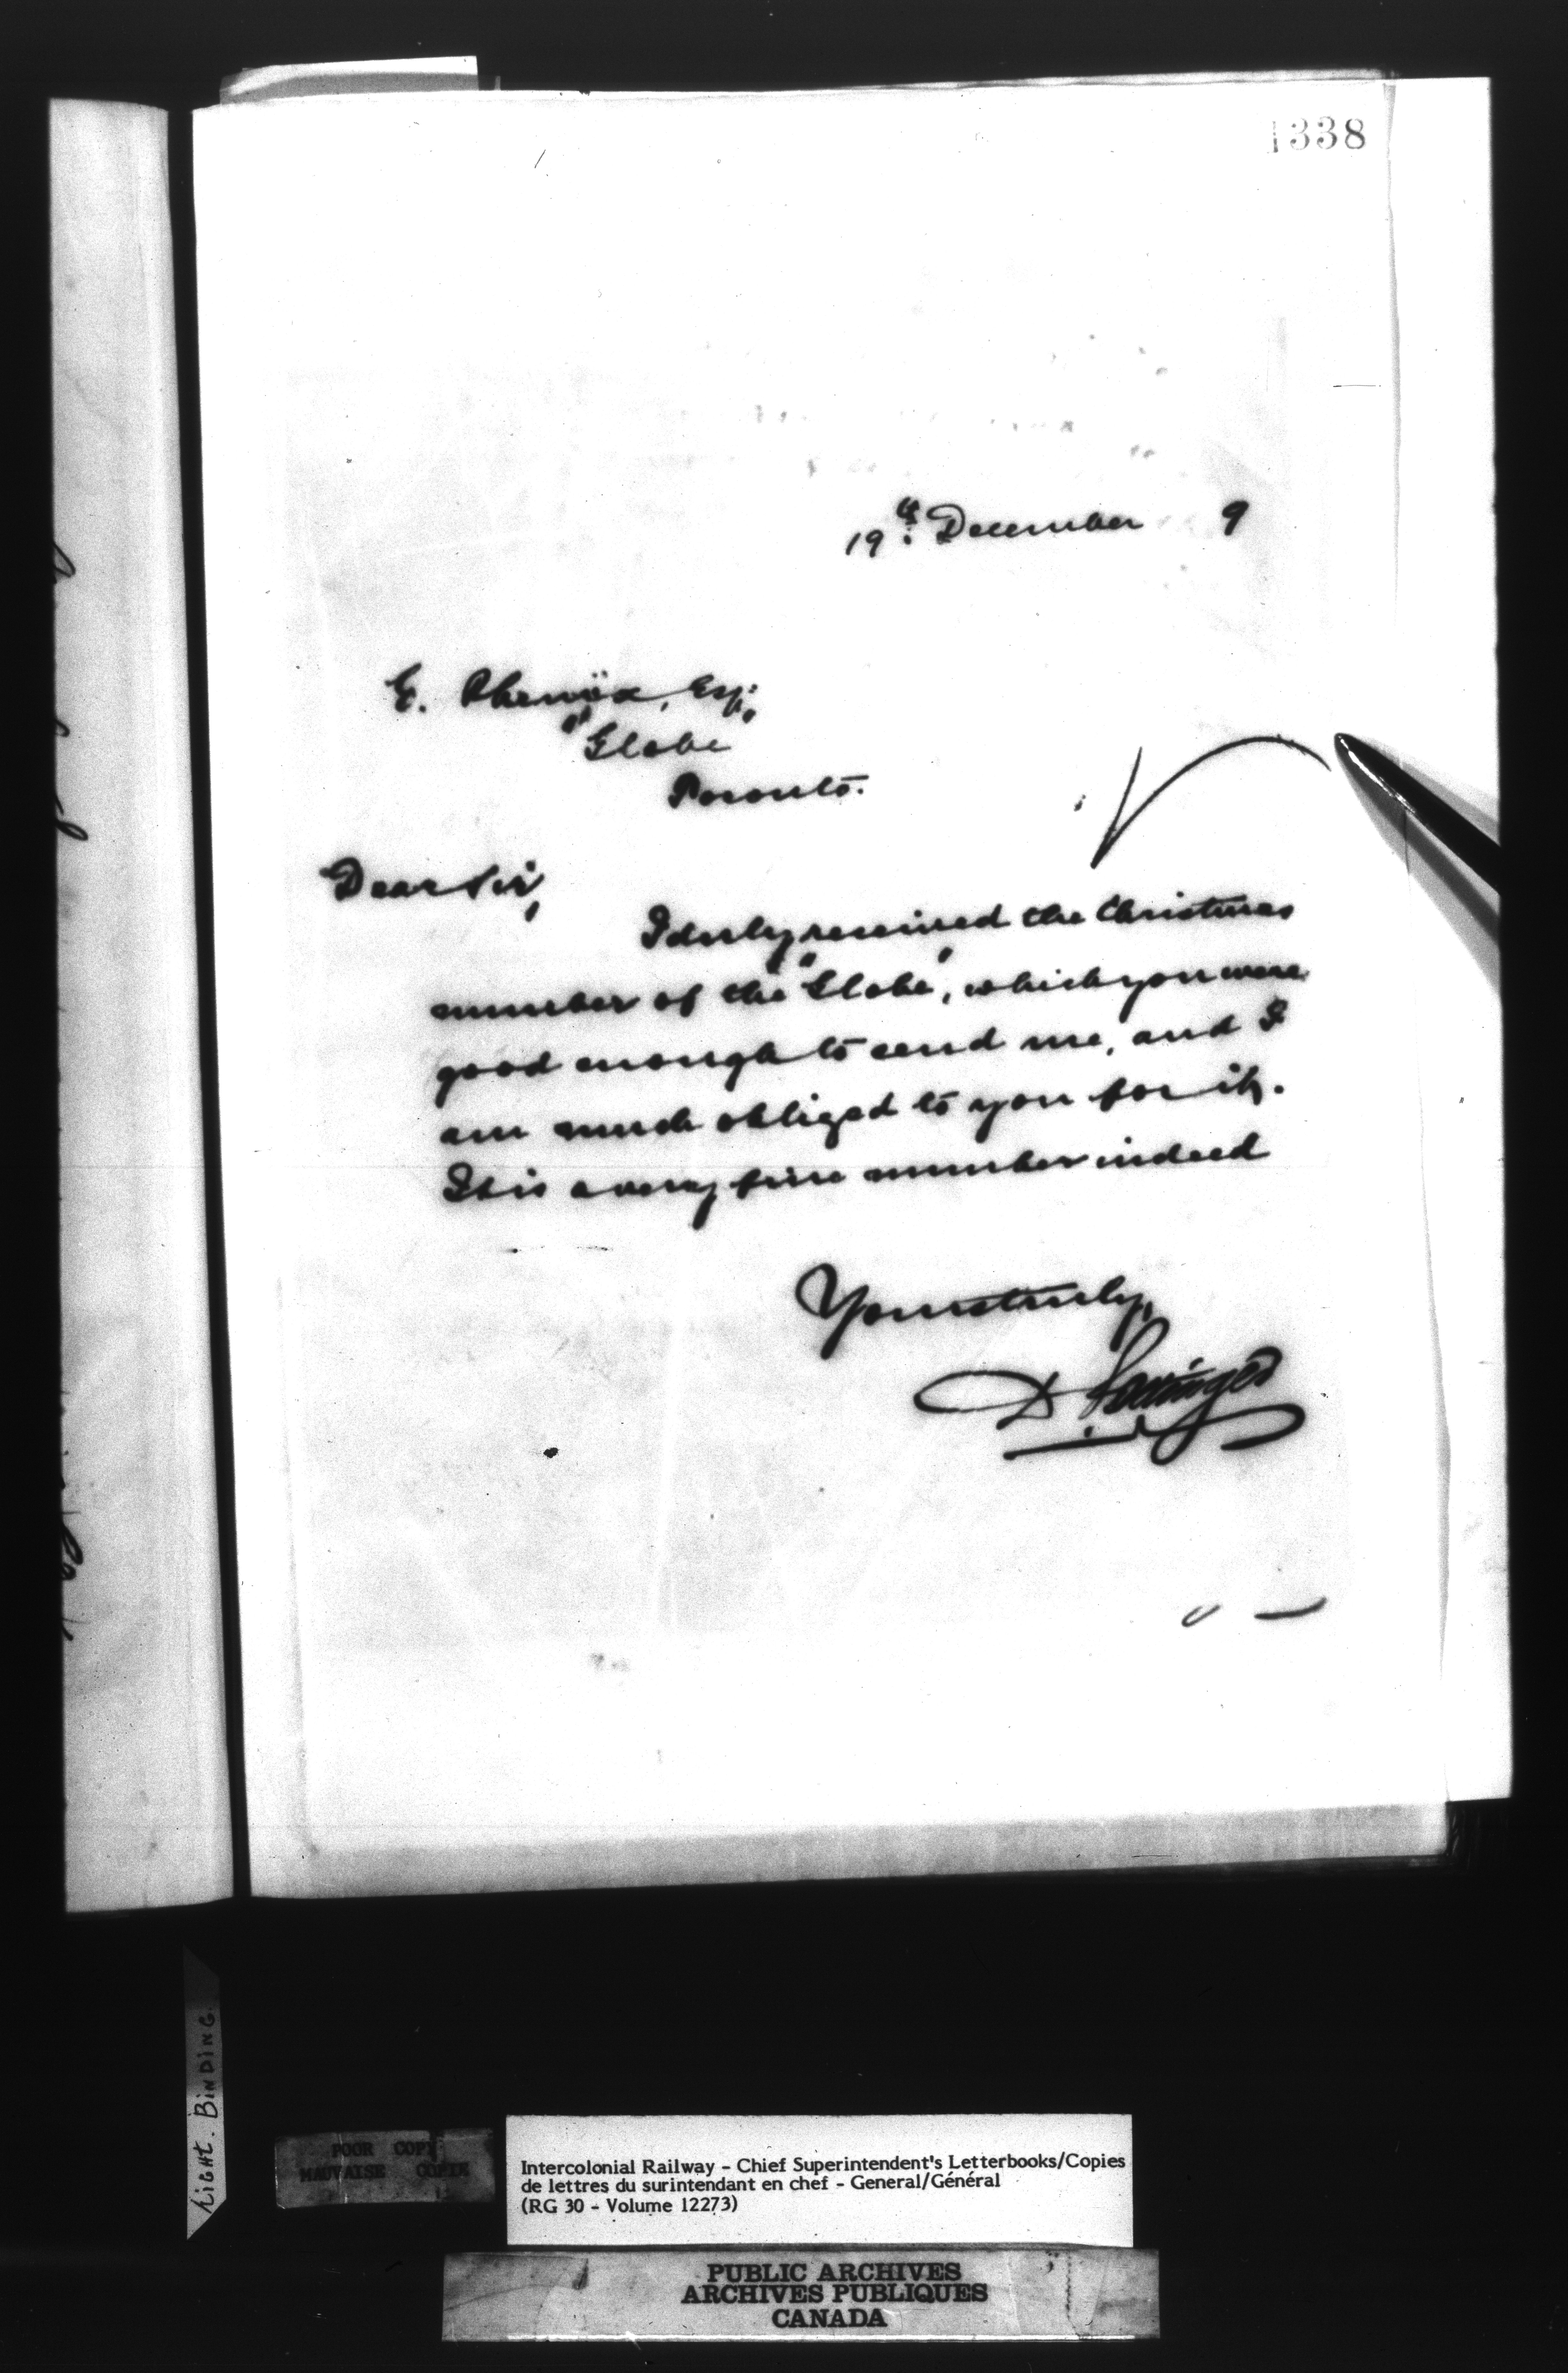 1338
19th December 9
E. Phenix, Esq:
"Globe"
Toronto.
Dear Sir,
I duly received the Christmas
number of the "Globe", which you were
good enough to send me, and I
am much obliged to you for it.
It is a very fine number indeed
Yours truly,
D Pottinger
Light. BINDING
POOR COPY
MAUVAISE COPIE
Intercolonial Railway - Chief Superintendent's Letterbooks/Copies
de lettres du surintendant en chef - General/Général
(RG 30 - Volume 12273)
PUBLIC ARCHIVES
ARCHIVES PUBLIQUES
CANADA